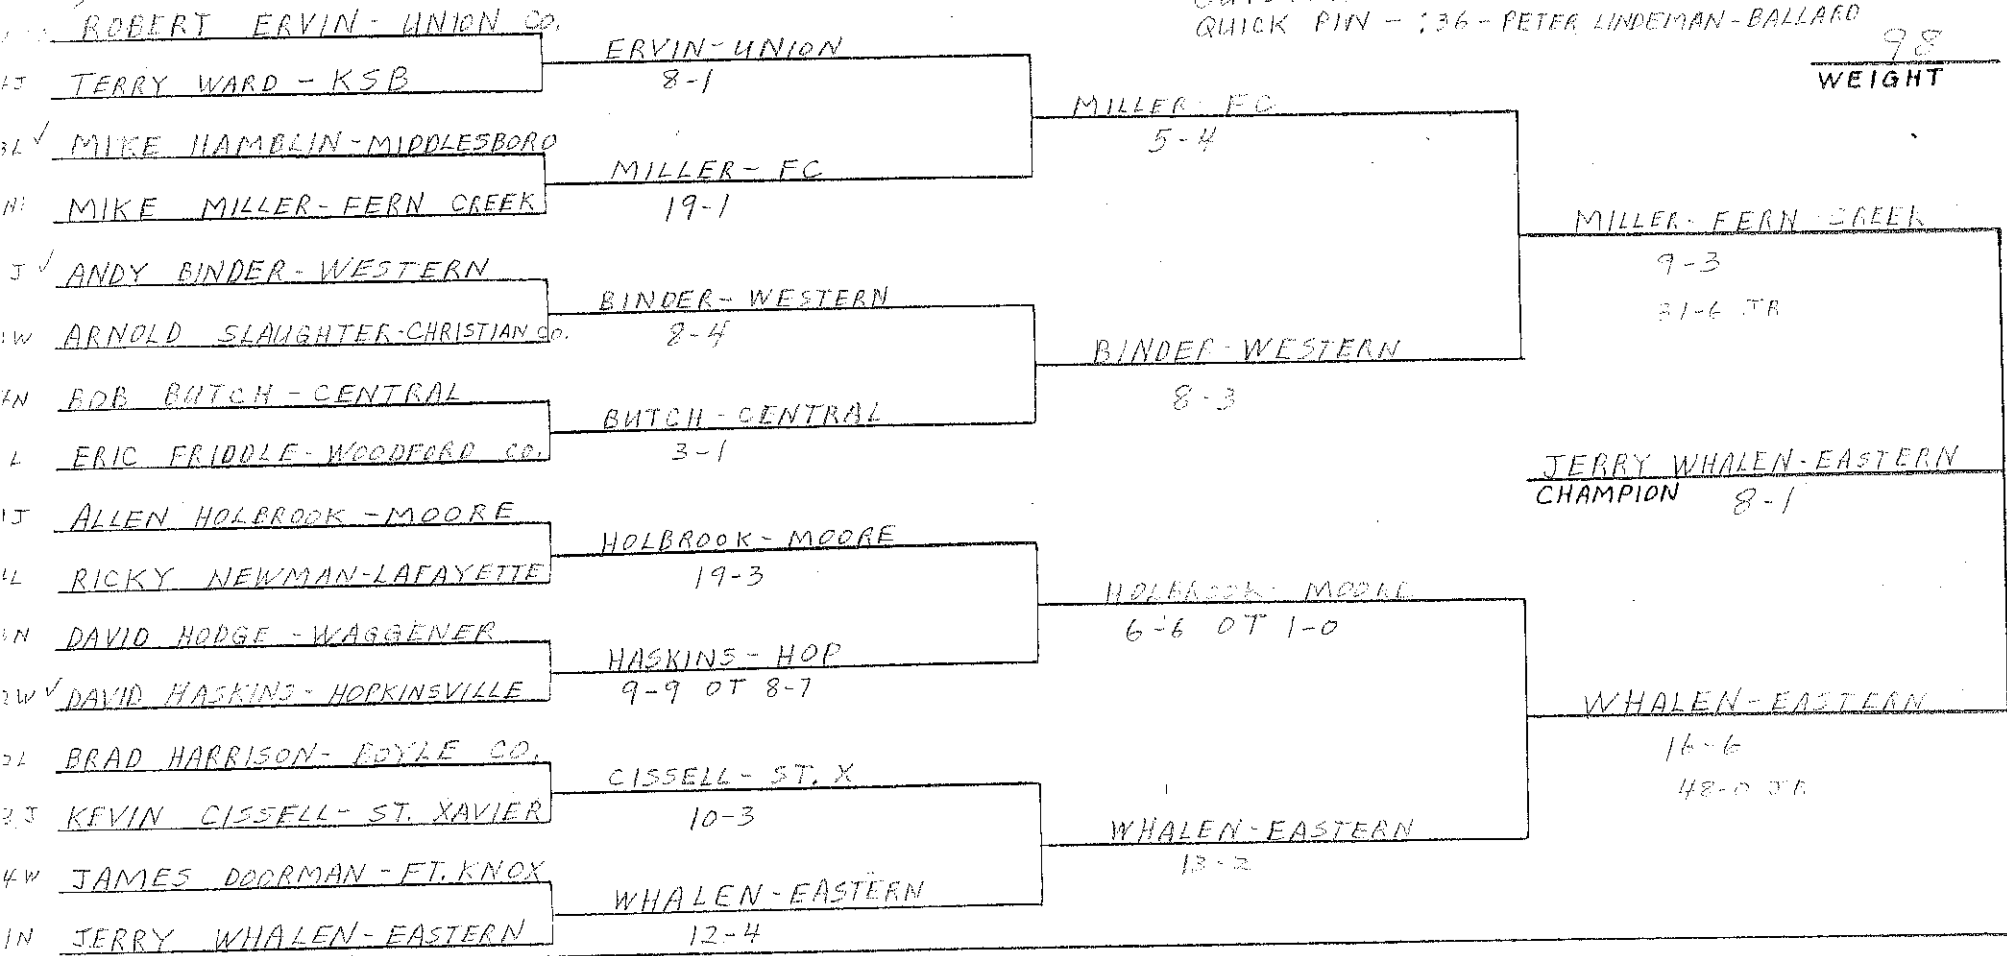 QUICK PIN - :36 - PETER LINDEMAN - BALLARD
98
WEIGHT
ROBERT ERVIN - UNION CO.
TERRY WARD - KSB
MIKE HAMBLIN - MIDDLESBORO
MIKE MILLER - FERN CREEK
J ✓ ANDY BINDER - WESTERN
ARNOLD SLAUGHTER - CHRISTIAN CO.
BOB BUTCH - CENTRAL
L ERIC FRIDDLE - WOODFORD CO.
ALLEN HOLBROOK - MOORE
RICKY NEWMAN - LAFAYETTE
DAVID HODGE - WAGGENER
2W ✓ DAVID HASKINS - HOPKINSVILLE
BRAD HARRISON - BOYLE CO.
KEVIN CISSELL - ST. XAVIER
4W JAMES DOORMAN - FT. KNOX
1N JERRY WHALEN - EASTERN
ERVIN - UNION
8-1
MILLER - FC
19-1
BINDER - WESTERN
8-4
BUTCH - CENTRAL
3-1
HOLBROOK - MOORE
19-3
HASKINS - HOP
9-9 OT 8-7
CISSELL - ST. X
10-3
WHALEN - EASTERN
12-4
MILLER - FC
5-4
BINDER - WESTERN
8-3
HOLBROOK - MOORE
6-6 OT 1-0
WHALEN - EASTERN
13-2
MILLER - FERN CREEK
9-3
31-6 JR
WHALEN - EASTERN
16-6
48-0 JR
JERRY WHALEN - EASTERN
CHAMPION 8-1